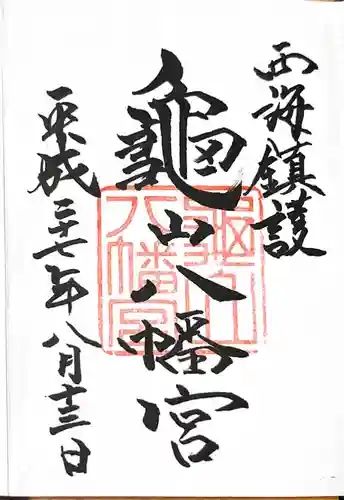 西海鎮護
龜山八幡宮
平成二十七年八月十三日
龜山
八幡宮